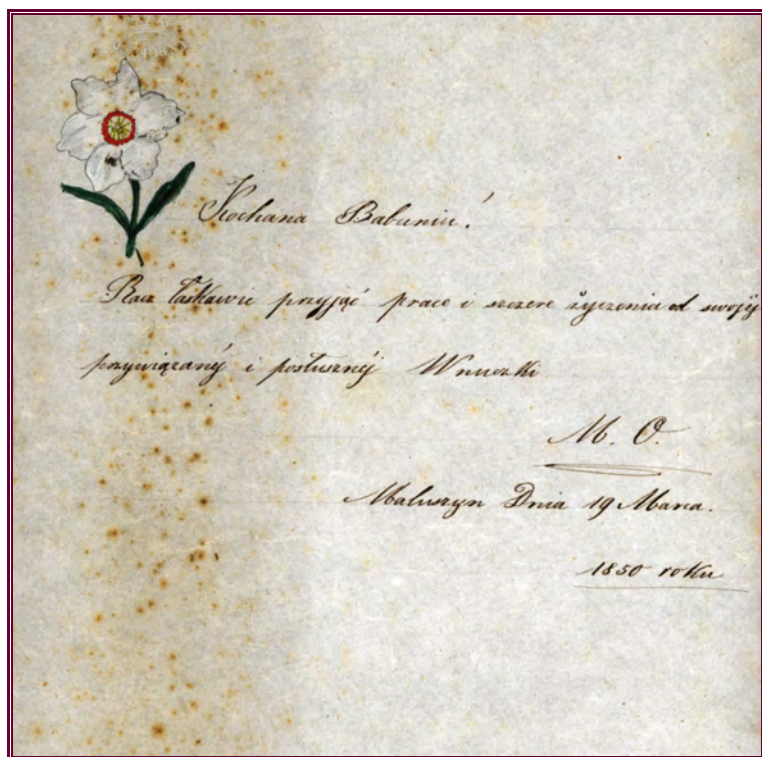 Kochana Babuniu!
Racz łaskawie przyjąć prace i szczere życzenia od swojéj
przywiązanéj i posłusznéj Wnuczki
M. O.
Maluszyn Dnia 19 Marca.
1850 roku